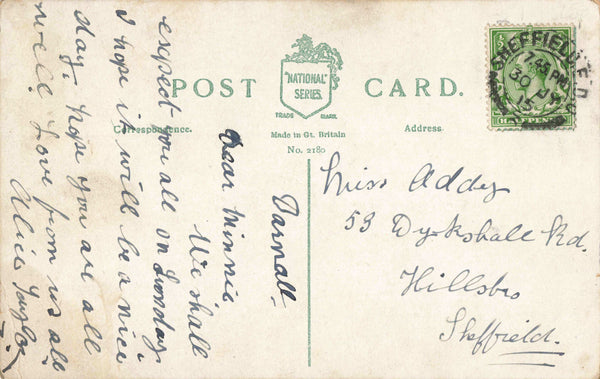 POST CARD.
"NATIONAL"
SERIES.
TRADE MARK.
Correspondence.
Made in Gt. Britain
Address.
No. 2180
SHEFFIELD
7.45 PM
30
15
HALFPENNY
Darnall.
Dear Minnie
We shall
expect you all on Sunday.
I hope it will be a nice
day. hope you are all
well. Love from us all
Alice Taylor
Miss Addy
53 Dykshall Rd.
Hillsbro
Sheffield.